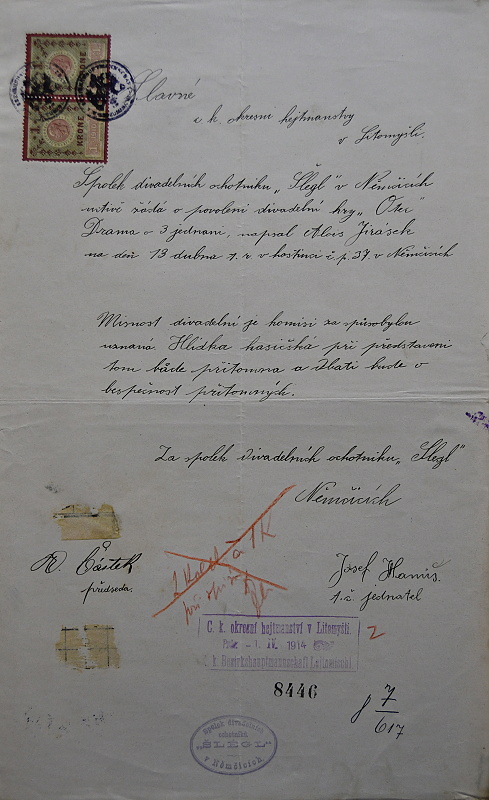 Slavné
c k. okresní hejtmanství
v Litomyšli.
Spolek divadelních ochotníku „Šlégl" v Němčicích
uctivě žádá o povolení divadelní hry „Otec"
Drama o 3 jednaní, napsal Alois Jirásek
na den 13 dubna t. r. v hostinci č. p. 37. v Němčicích
Místnost divadelní je komisí za spůsobylou
uznaná. Hlídka hasičská při představení
tom bude přítomna a dbáti bude o
bezpečnost přítomných.
Za spolek divadelních ochotníku „Šlégl"
Němčicích
Částek
předseda.
Josef Hanuš
t. č. jednatel
C. k. okresní hejtmanství v Litomyšli.
- 1. IV. 1914
C. k. Bezirkshauptmannschaft Leitomischl.
2
8446
7
617
Spolek divadelních
ochotníků
"ŠLÉGL"
v Němčicích
1 KRONE
1 KRONE